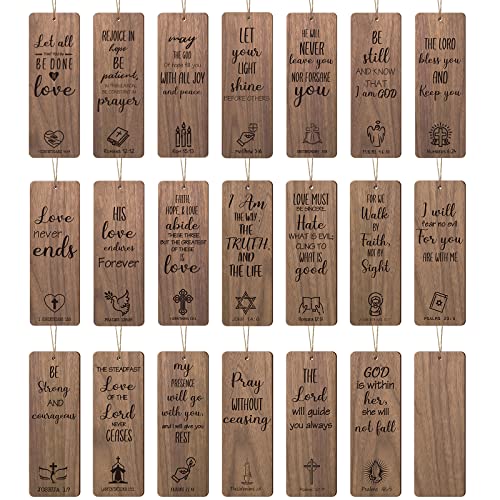 Let all
THAT YOU DO
BE DONE
in
love
REJOICE IN
hope
BE
patient,
IN TRIBULATION,
BE CONSTANT IN
prayer
Romans 12:12
may
THE GOD
Of hope fill you
WITH ALL JOY
and peace
Rom 15:13
LET
your
LIGHT
shine
BEFORE OTHERS
Matthew 5:16
HE
WILL
NEVER
LEAVE YOU
NOR FORSAKE
you
DEUTERONOMY 31:6
BE
still
AND KNOW
THAT
I am GOD
PSALMS 46:10
THE LORD
bless you
AND
Keep you
Numbers 6:24
Love
never
ends
1 CORINTHIANS 13:8
HIS
love
endures
Forever
PSALMS 136:26
FAITH,
HOPE, & LOVE
abide
THESE THREE,
BUT THE GREATEST
OF THESE
is
love
1 CORINTHIANS 13:13
I Am
THE WAY,
THE
TRUTH,
AND
THE LIFE
JOHN 14:6
LOVE MUST
BE SINCERE.
Hate
WHAT IS EVIL;
CLING TO
WHAT IS
good
Romans 12:9
FOR WE
Walk
BY
Faith,
NOT BY
Sight
I will
fear no evil
For you
ARE WITH ME
PSALMS 23:4
BE
Strong
AND
courageous
JOSHUA 1:9
THE STEADFAST
Love
OF THE
Lord
NEVER
CEASES
LAMENTATIONS 3:22
my
PRESENCE
will go
with you,
and I will give you
REST
Exodus 33:14
Pray
WITHOUT
ceasing
THE
Lord
will guide
you always
GOD
is within
her,
she will
not fall
Psalms 46:5